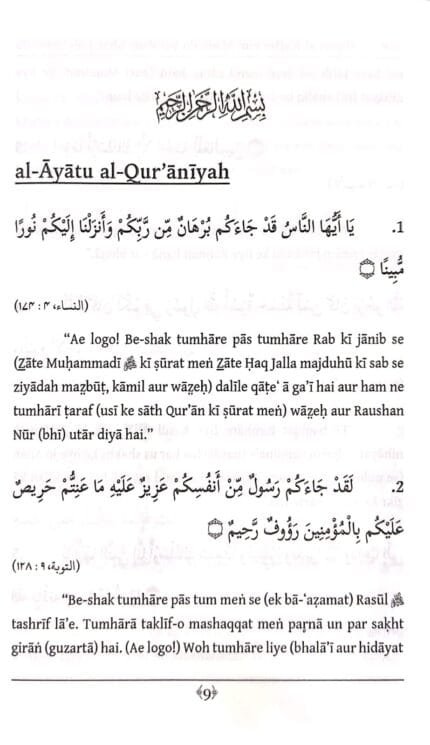 بِسْمِ اللهِ الرَّحْمٰنِ الرَّحِيْمِ
al-Āyātu al-Qur’ānīyah
1. يَا أَيُّهَا النَّاسُ قَدْ جَاءَكُم بُرْهَانٌ مِّن رَّبِّكُمْ وَأَنزَلْنَا إِلَيْكُمْ نُورًا
مُّبِينًا ۝
(النساء، ٤ : ١٧٤)
“Ae logo! Be-shak tumhāre pās tumhāre Rab kī jānib se
(Z̲āte Muḥammadī ﷺ kī ṣurat meṅ Z̲āte Ḥaq Jalla majduhū kī sab se
ziyādah maz̤būt̤, kāmil aur wāz̤eḥ) dalīle qāt̤e‘ ā ga’ī hai aur ham ne
tumhārī t̤araf (usī ke sāth Qur’ān kī ṣurat meṅ) wāz̤eḥ aur Raushan
Nūr (bhī) utār diyā hai.”
2. لَقَدْ جَاءَكُمْ رَسُولٌ مِّنْ أَنفُسِكُمْ عَزِيزٌ عَلَيْهِ مَا عَنِتُّمْ حَرِيصٌ
عَلَيْكُم بِالْمُؤْمِنِينَ رَؤُوفٌ رَّحِيمٌ ۝
(التوبة، ٩ : ١٢٨)
“Be-shak tumhāre pās tum meṅ se (ek bā-‘az̤amat) Rasūl ﷺ
tashrīf lā’e. Tumhārā taklīf-o mashaqqat meṅ paṛnā un par sak̲h̲t
girāṅ (guzartā) hai. (Ae logo!) Woh tumhāre liye (bhalā’ī aur hidāyat
﴾9﴿